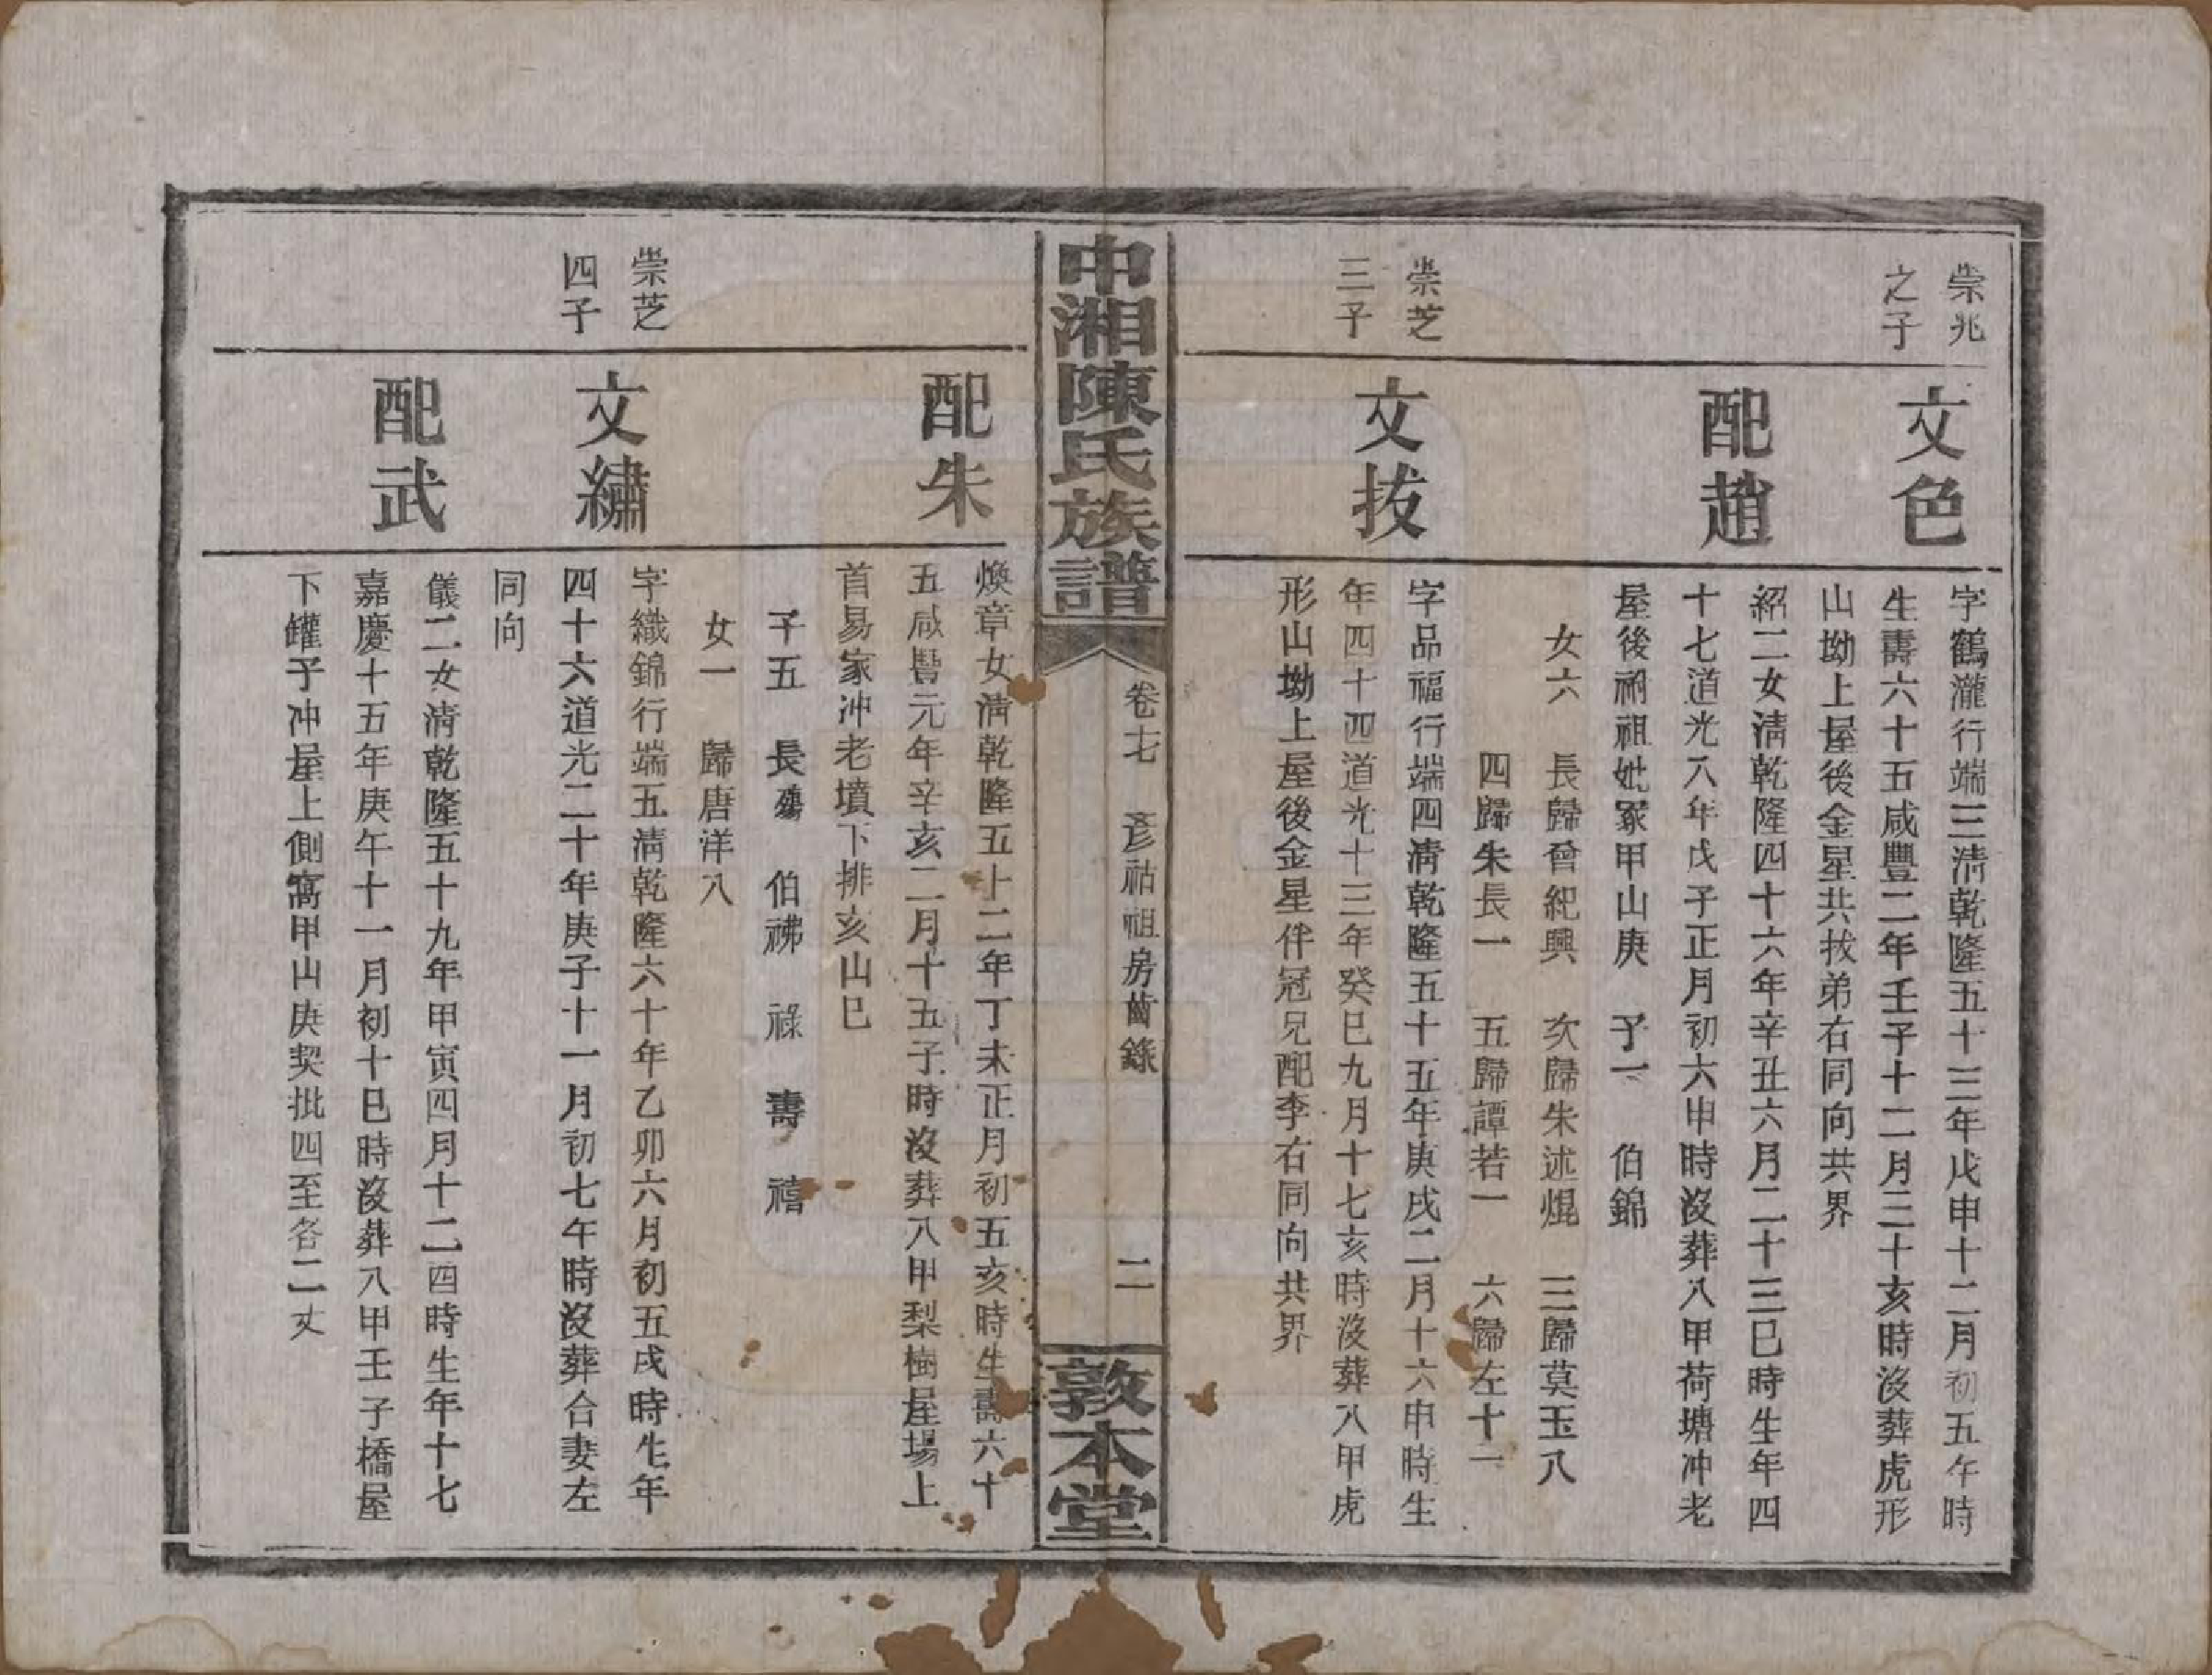 崇兆
之子
文色
字鶴瀧行端三清乾隆五十三年戊申十二月初五午時
生壽六十五咸豐二年壬子十二月三十亥時沒葬虎形
山坳上屋後金星共拔弟右同向共界
配趙
紹二女清乾隆四十六年辛丑六月二十三巳時生年四
十七道光八年戊子正月初六申時沒葬八甲荷塘冲老
屋後祔祖妣冢甲山庚 子一 伯錦
女六 長歸曾紀興 次歸朱述焜 三歸莫玉八
四歸朱長一 五歸譚若一 六歸左十一
崇芝
三子
文拔
字品福行端四清乾隆五十五年庚戌二月十六申時生
年四十四道光十三年癸巳九月十七亥時沒葬八甲虎
形山坳上屋後金星伴冠兄配李右同向共界
中湘陳氏族譜
卷七 彥祜祖房齒錄 二
敦本堂
配朱
煥章女清乾隆五十二年丁未正月初五亥時生壽六十
五咸豐元年辛亥二月十五子時沒葬八甲梨樹屋場上
首易家冲老墳下排亥山巳
子五 長殤 伯祓 祿 壽 禧
女一 歸唐洋八
崇芝
四子
文繡
字織錦行端五清乾隆六十年乙卯六月初五戌時生年
四十六道光二十年庚子十一月初七午時沒葬合妻左
同向
配武
儀二女清乾隆五十九年甲寅四月十二四時生年十七
嘉慶十五年庚午十一月初十巳時沒葬八甲壬子橋屋
下罐子冲屋上側窩甲山庚契批四至各二丈